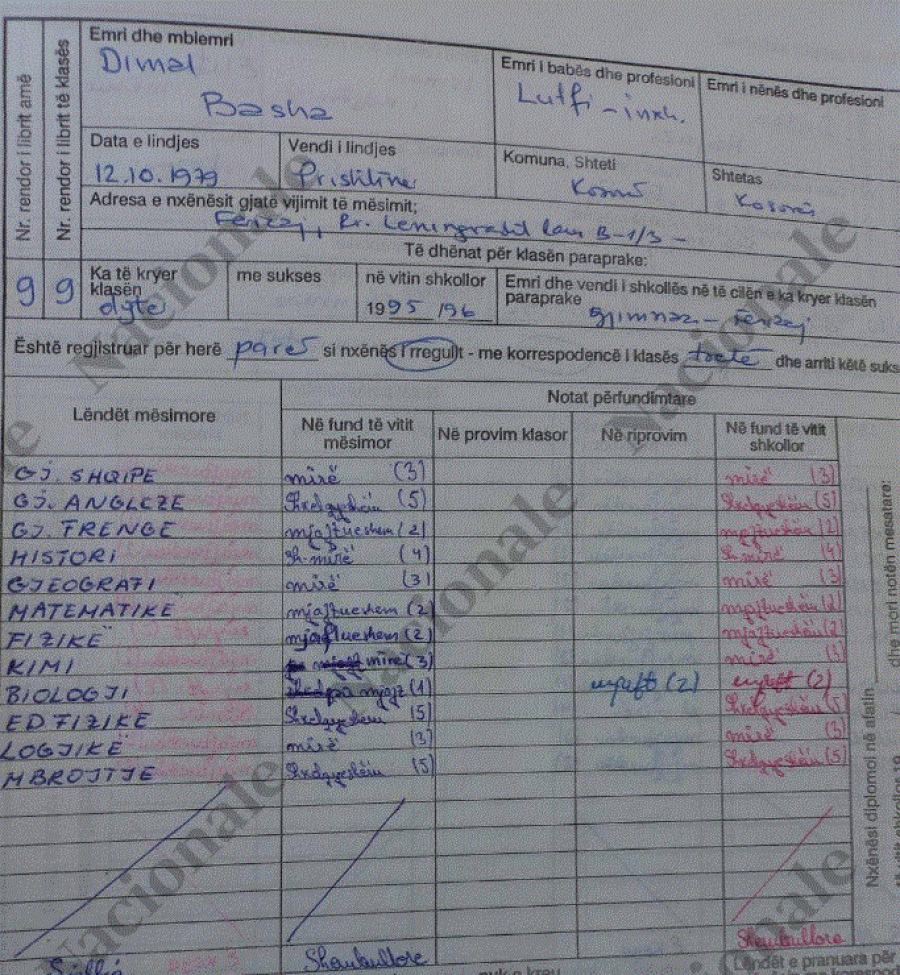 Nr. rendor i librit amë
Nr. rendor i librit të klasës
Emri dhe mbiemri
Dimal
Basha
Emri i babës dhe profesioni
Lutfi - inxh.
Emri i nënës dhe profesioni
Data e lindjes
12.10.1979
Vendi i lindjes
Prishtinë
Komuna, Shteti
Shtetas
Adresa e nxënësit gjatë vijimit të mësimit;
Ferizaj, Rr. Leningradit lam B-1/3 -
Të dhënat për klasën paraprake:
9 9
Ka të kryer klasën
dytë
me sukses
në vitin shkollor
1995 /96
Emri dhe vendi i shkollës në të cilën e ka kryer klasën
paraprake
gjimnaz - Ferizaj
Është regjistruar për herë parë si nxënës i rregullt - me korrespodencë i klasës tretë dhe arriti këtë suks
Lëndët mësimore
Notat përfundimtare
Në fund të vitit mësimor
Në provim klasor
Në riprovim
Në fund të vitit shkollor
GJ. SHQIPE mirë (3) mirë (3)
GJ. ANGLEZE Shkëlqyeshëm (5) Shkëlqyeshëm (5)
GJ. FRENGE mjaftueshem (2) mjaftueshëm (2)
HISTORI sh. mirë (4) Sh. mirë (4)
GJEOGRAFI mirë (3) mirë (3)
MATEMATIKË mjaftueshem (2) mjaftueshëm (2)
FIZIKË mjaftueshem (2) mjaftueshëm (2)
KIMI mirë (3) mirë (3)
BIOLOGJI pa mjaf (1) mjaft (2) mjaft (2)
ED FIZIKE Shkëlqyeshëm (5) Shkëlqyeshëm (5)
LOGJIKË mirë (3) mirë (3)
MBROJTJE Shkëlqyeshëm (5) Shkëlqyeshëm (5)
Nxënësi diplomoi në afatin
dhe mori notën mesatare:
Nacionale
Nacionale
Nacionale
Nacionale
Shembullore
Shembullore
Lëndët e pranuara për